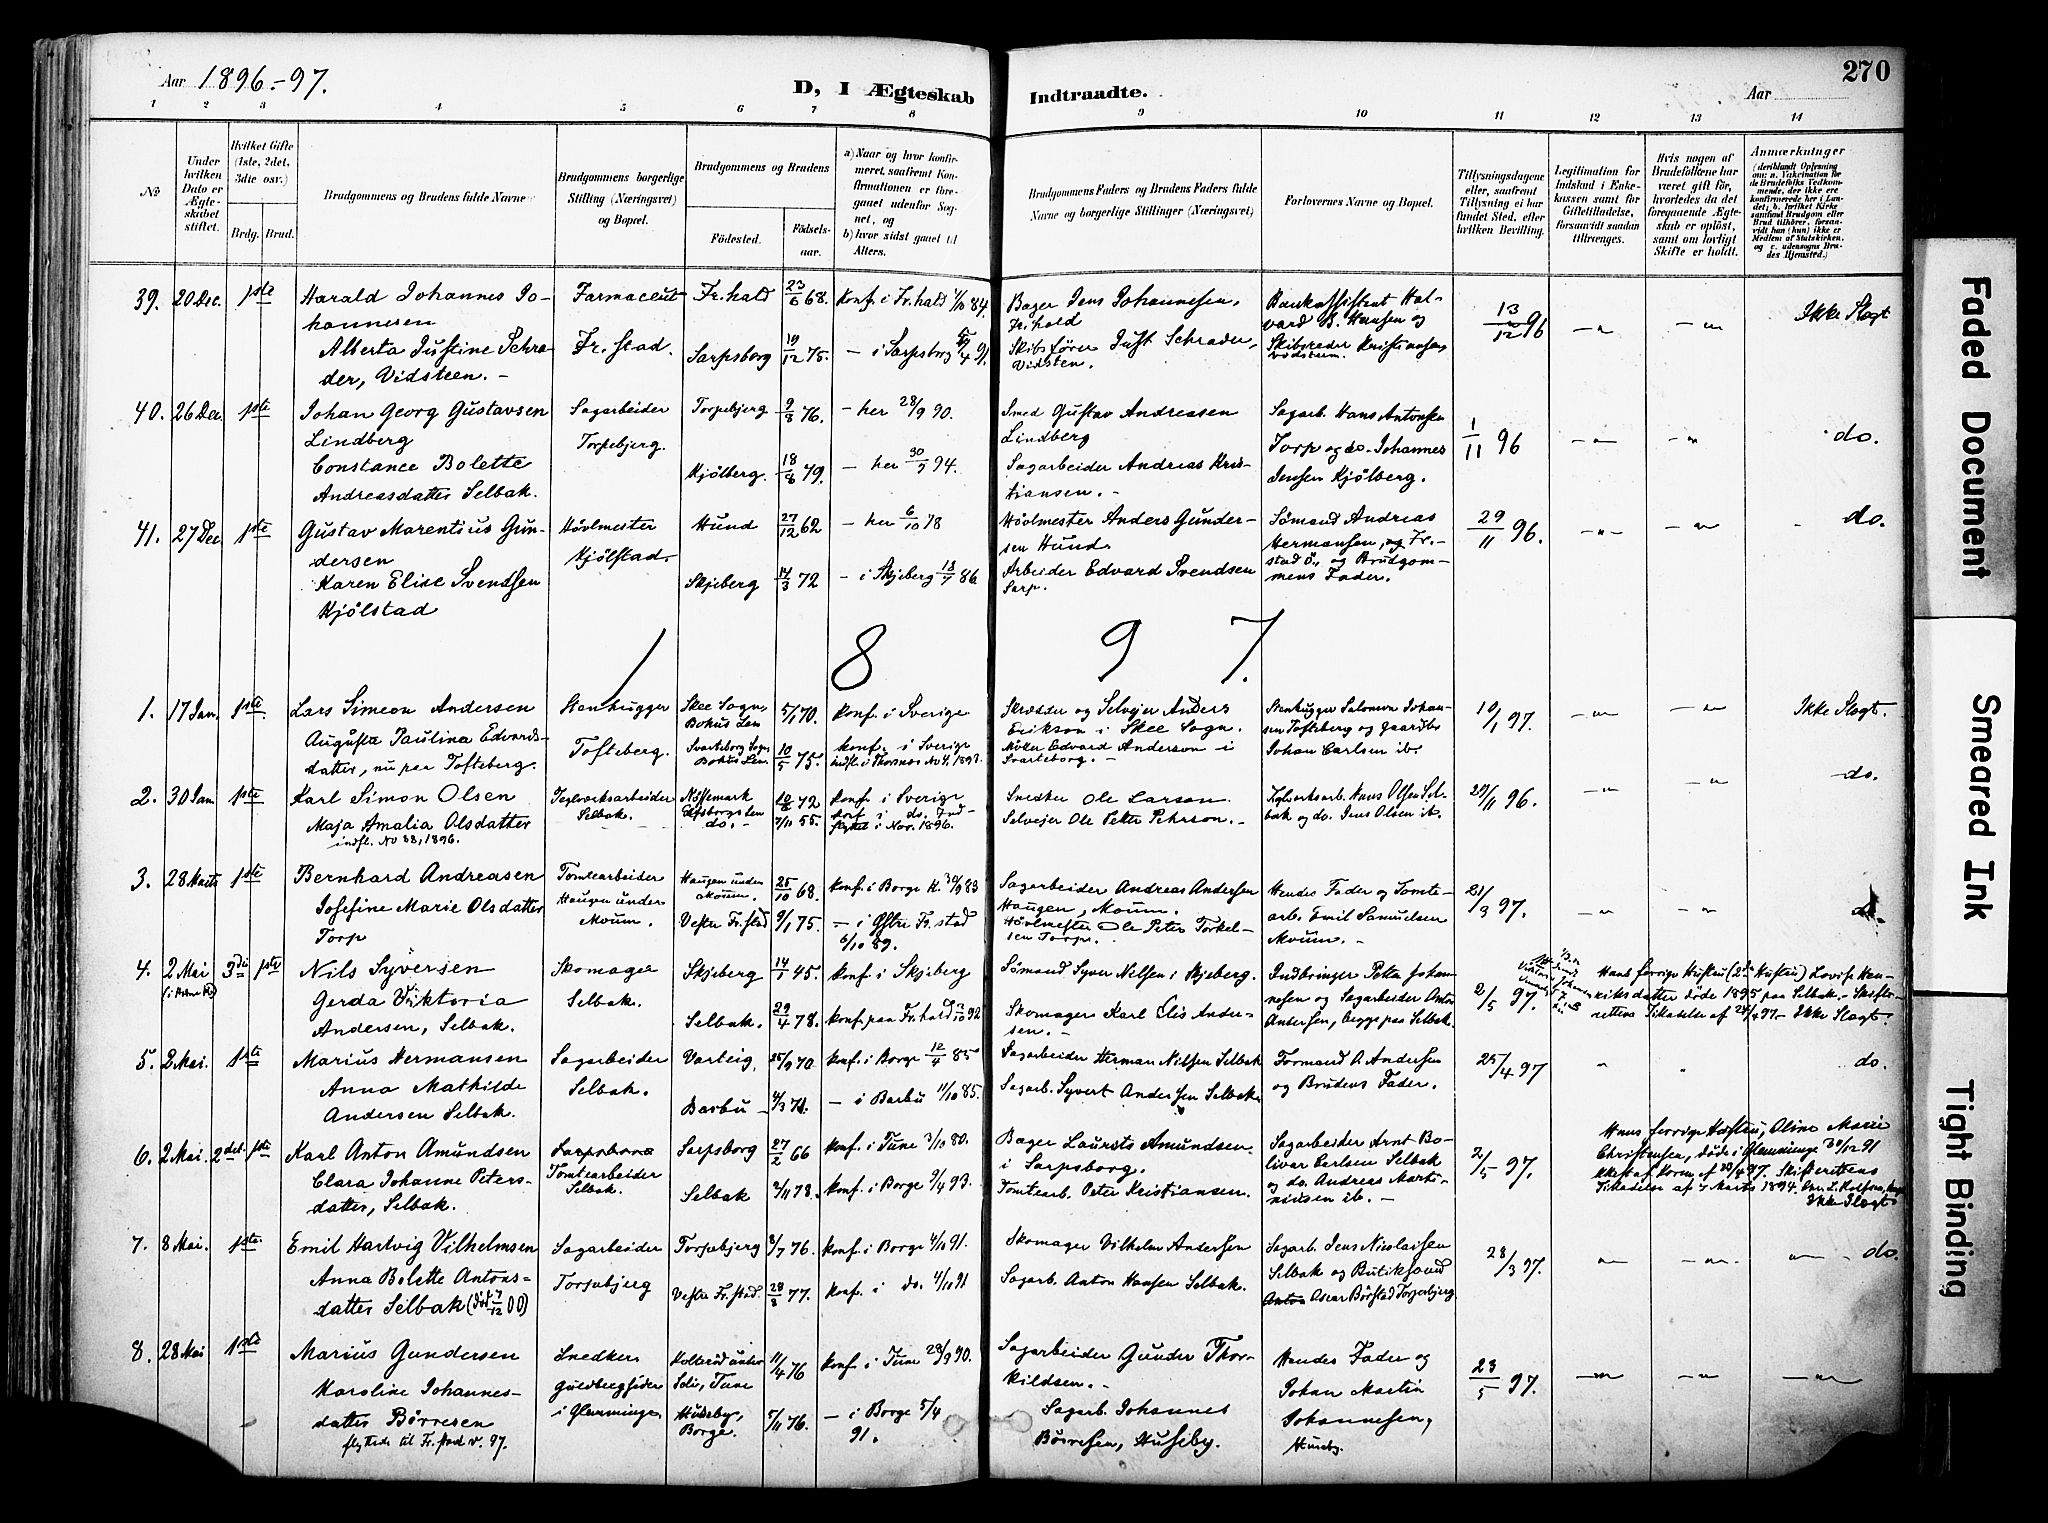 Aar 1896.-97.
D, I Ægteskab Indtraadte.
Aar
270
1 2 3 4 5 6 7 8 9 10 11 12 13 14
No
Under hvilken Dato er Ægteskabet stiftet.
Hvilket Gifte (1ste, 2det, 3die osv.)
Brdg. Brud.
Brudgommens og Brudens fulde Navne
Brudgommens borgerlige Stilling (Næringsvei) og Bopæl.
Brudgommens og Brudens
Fødested.
Fødselsaar.
a) Naar og hvor konfirmeret, saafremt Konfirmationen er foregaaet udenfor Sognet, og
b) hvor sidst gaaet til Alters.
Brudgommens Faders og Brudens Faders fulde Navne og borgerlige Stillinger (Næringsvei)
Forlovernes Navne og Bopæl.
Tillysningsdagene eller, saafremt Tillysning ei har fundet Sted, efter hvilken Bevilling.
Legitimation for Indskud i Enkekassen samt for Giftetilladelse, forsaavidt saadan tiltrænges.
Hvis nogen af Brudefolkene har været gift før, hvorledes da det foregaaende Ægteskab er opløst, samt om lovligt Skifte er holdt.
Anmærkninger
39. 20 Dec. 1ste
Harald Johannes Johannesen
Alberta Justine Schrader, Vidsteen. -
Farmaceut
Fr.stad.
Fr.hald 23/6 68.
Sarpsborg 19/12 75.
Konf. i Fr.hald 1/10 84.
- i Sarpsborg 5/4 91.
Bager Jens Johannesen, Fr.hald
Skibsfører Just Schrader, Vidsten.
Bankassistent Halvard B. Hansen og
Skibsreder Kristiansen, Vidsteen.
13/12 96
Ikke Slægt
40. 26 Dec. 1ste
Johan Georg Gustavsen Lindberg
Constance Bolette Andreasdatter Selbak.
Sagarbeider
Torpebjerg.
Torpebjerg 9/8 76.
Kjølberg. 18/8 79.
- her 28/9 90.
- her 30/9 94.
Smed Gustav Andreasen Lindberg
Sagarbeider Andreas Kristiansen. -
Sagarb. Hans Antonsen Torp og do. Johannes Jensen Kjølberg.
1/11 96
do.
41. 27 Dec. 1ste
Gustav Marentius Gundersen
Karen Elise Svendsen Kjølstad
Høvlmester
Kjølstad.
Hund 27/12 62
Skjeberg 14/3 72
- her 6/10 78
- i Skjeberg 18/7 86
Høvlmester Anders Gundersen Hund.
Arbeider Edvard Svendsen Sarp.
Sømand Andreas Hermansen, Fr.stad Ø., og Brudgommens Fader.
29/11 96.
do.
1 8 9 7.
1. 17 Jan. 1ste.
Lars Simeon Andersen
Augusta Paulina Edvardsdatter, nu paa Tofteberg.
Stenhugger
Tofteberg.
Skee Sogn, Bohus Len 5/1 70.
Svarteborg Sogn Bohus Len. 10/5 75.
konf. i Sverige
konf. i Sverige
Skrædder og Selveier Anders Erikson i Skee Sogn.
Møller Edvard Anderson i Svarteborg. -
Stenhugger Salomon Johansen Tofteberg og Gaardbr. Johan Carlsen ib.
10/1 97.
Ikke Slægt.
2. 30 Jan 1ste
Karl Simon Olsen
Maja Amalia Olsdatter
indfl. No 38, 1896.
Teglverksarbeider
Selbak.
Nössemark Elfsborgs Len 10/8 72
do. - 2/11 55.
konf. i Sverige
konf. i do. Indflyttet i Nov. 1896.
Snedker Ole Larson.
Selveier Ole Peter Pehrson. -
Teglverksarb. Hans Olsen Selbak og do. Jens Olsen ib.
29/11 96.
do.
3. 28 Marts 1ste
Bernhard Andreasen
Josefine Marie Olsdatter Torp
Tomtearbeider
Haugen under Moum.
Haugen under Moum. 25/10 68.
Vestre Fr.stad 9/1 75.
konf. i Borge K. 30/9 83
- i Østre Fr.stad 6/10 89.
Sagarbeider Andreas Andersen Haugen, Moum.
Høvlmester Ole Peter Torkelsen Torp.
Hendes Fader og Tomtearb. Emil Samuelsen Moum. -
21/3 97.
4. 2 Mai 3die 1ste
Nils Syversen
Gerda Viktoria Andersen, Selbak.
Skomager
Selbak.
Skjeberg 14/1 45.
Selbak. 29/4 78.
konf. i Skjeberg
konf. paa Fr.hald 2/10 92
Sømand Syver Nilsen i Skjeberg.
Skomager Karl Elis Andersen. -
Indbringer Petter Johannesen og Sagarbeider Anton Andersen, begge paa Selbak.
2/5 97.
Hans forrige Hustru (2den Hustru) Lovise Henriksdatter døde 1895 paa Selbak. - Skifterettens Tilladelse af 24/4 97. - Ikke Slægt.
5. 2 Mai. 1ste
Marius Hermansen
Anna Mathilde Andersen Selbak.
Sagarbeider
Selbak.
Varteig, 25/9 70
Barbu - 4/3 71.
konf. i Borge 12/4 85
- i Barbu 11/10 85.
Sagarbeider Herman Nilsen Selbak
Sagarb. Syvert Andersen Selbak.
Formand A. Andersen og Brudens Fader.
25/4 97
do.
6. 2 Mai. 2det 1ste
Karl Anton Amundsen
Clara Johanne Petersdatter, Selbak.
Sarpsborg
Tomtearbeider
Selbak.
Sarpsborg 27/2 66
Selbak 2/11 78.
konf. i Tune 3/10 80.
konf. i Borge 9/4 93.
Bager Laurits Amundsen i Sarpsborg.
Tomtearb. Peter Kristiansen.
Sagarbeider Arnt Bolivar Carlsen Selbak og do. Andreas Martinusen ib. -
2/5 97.
Hans forrige Hustru, Oline Marie Christensen, døde i Glemminge 30/12 91
Skifterettens Tilladelse af 7 Marts 1894.
Ikke Slægt
7. 8 Mai. 1ste.
Emil Hartvig Vilhelmsen
Anna Bolette Antonsdatter Selbak (død 7/12 00)
Sagarbeider
Torpebjerg
Torpebjerg 3/7 76.
Vestre Fr.stad. 28/8 77.
konf. i Borge 4/10 91.
konf. i do. 4/10 91
Skomager Vilhelm Andersen
Sagarb. Anton Hansen Selbak.
Sagarb. Jens Nicolaisen Selbak og Butikssvend Anton Oscar Børstad Torpebjerg.
28/3 97.
do.
8. 28 Mai 1ste
Marius Gundersen
Karoline Johannesdatter Børresen
flyttede til Fr.stad v. 97.
Snedker
i Glemminge
Tune 11/4 76
Huseby, Borge. 5/11 76.
konf. i Tune 28/9 90.
- i Borge 5/4 91.
Sagarbeider Gunder Thorkildsen. -
Sagarb. Johannes Børresen, Huseby.
Hendes Fader og Johan Martin Johannesen, Huseby.
23/5 97.
Faded Document
Smeared Ink
Tight Binding